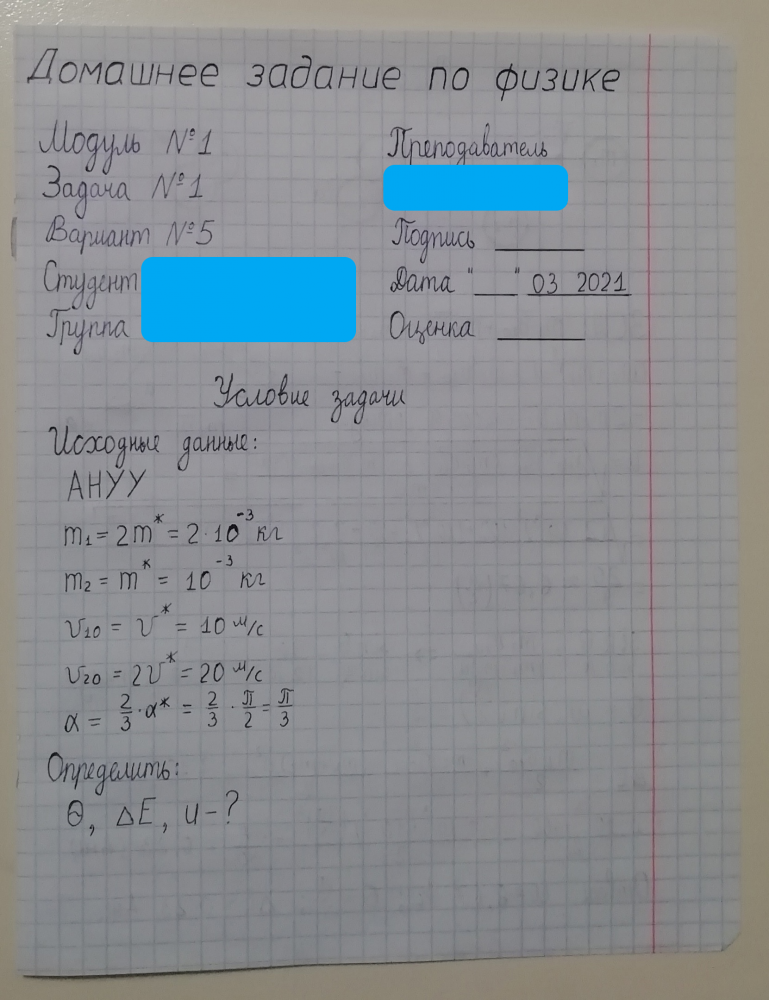 Домашнее задание по физике
Модуль №1
Задача №1
Вариант №5
Студент
Группа
Преподаватель
Подпись ______
Дата "___" 03 2021
Оценка ______
Условие задачи
Исходные данные:
АНУУ
m₁ = 2m* = 2·10⁻³ кг
m₂ = m* = 10⁻³ кг
υ₁₀ = υ* = 10 м/с
υ₂₀ = 2υ* = 20 м/с
α = 2/3 · α* = 2/3 · π/2 = π/3
Определить:
Θ, ΔE, u - ?